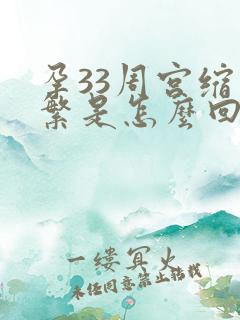 孕33周宫缩
繁是怎麽回
一缕冥火
未经同意禁止转载